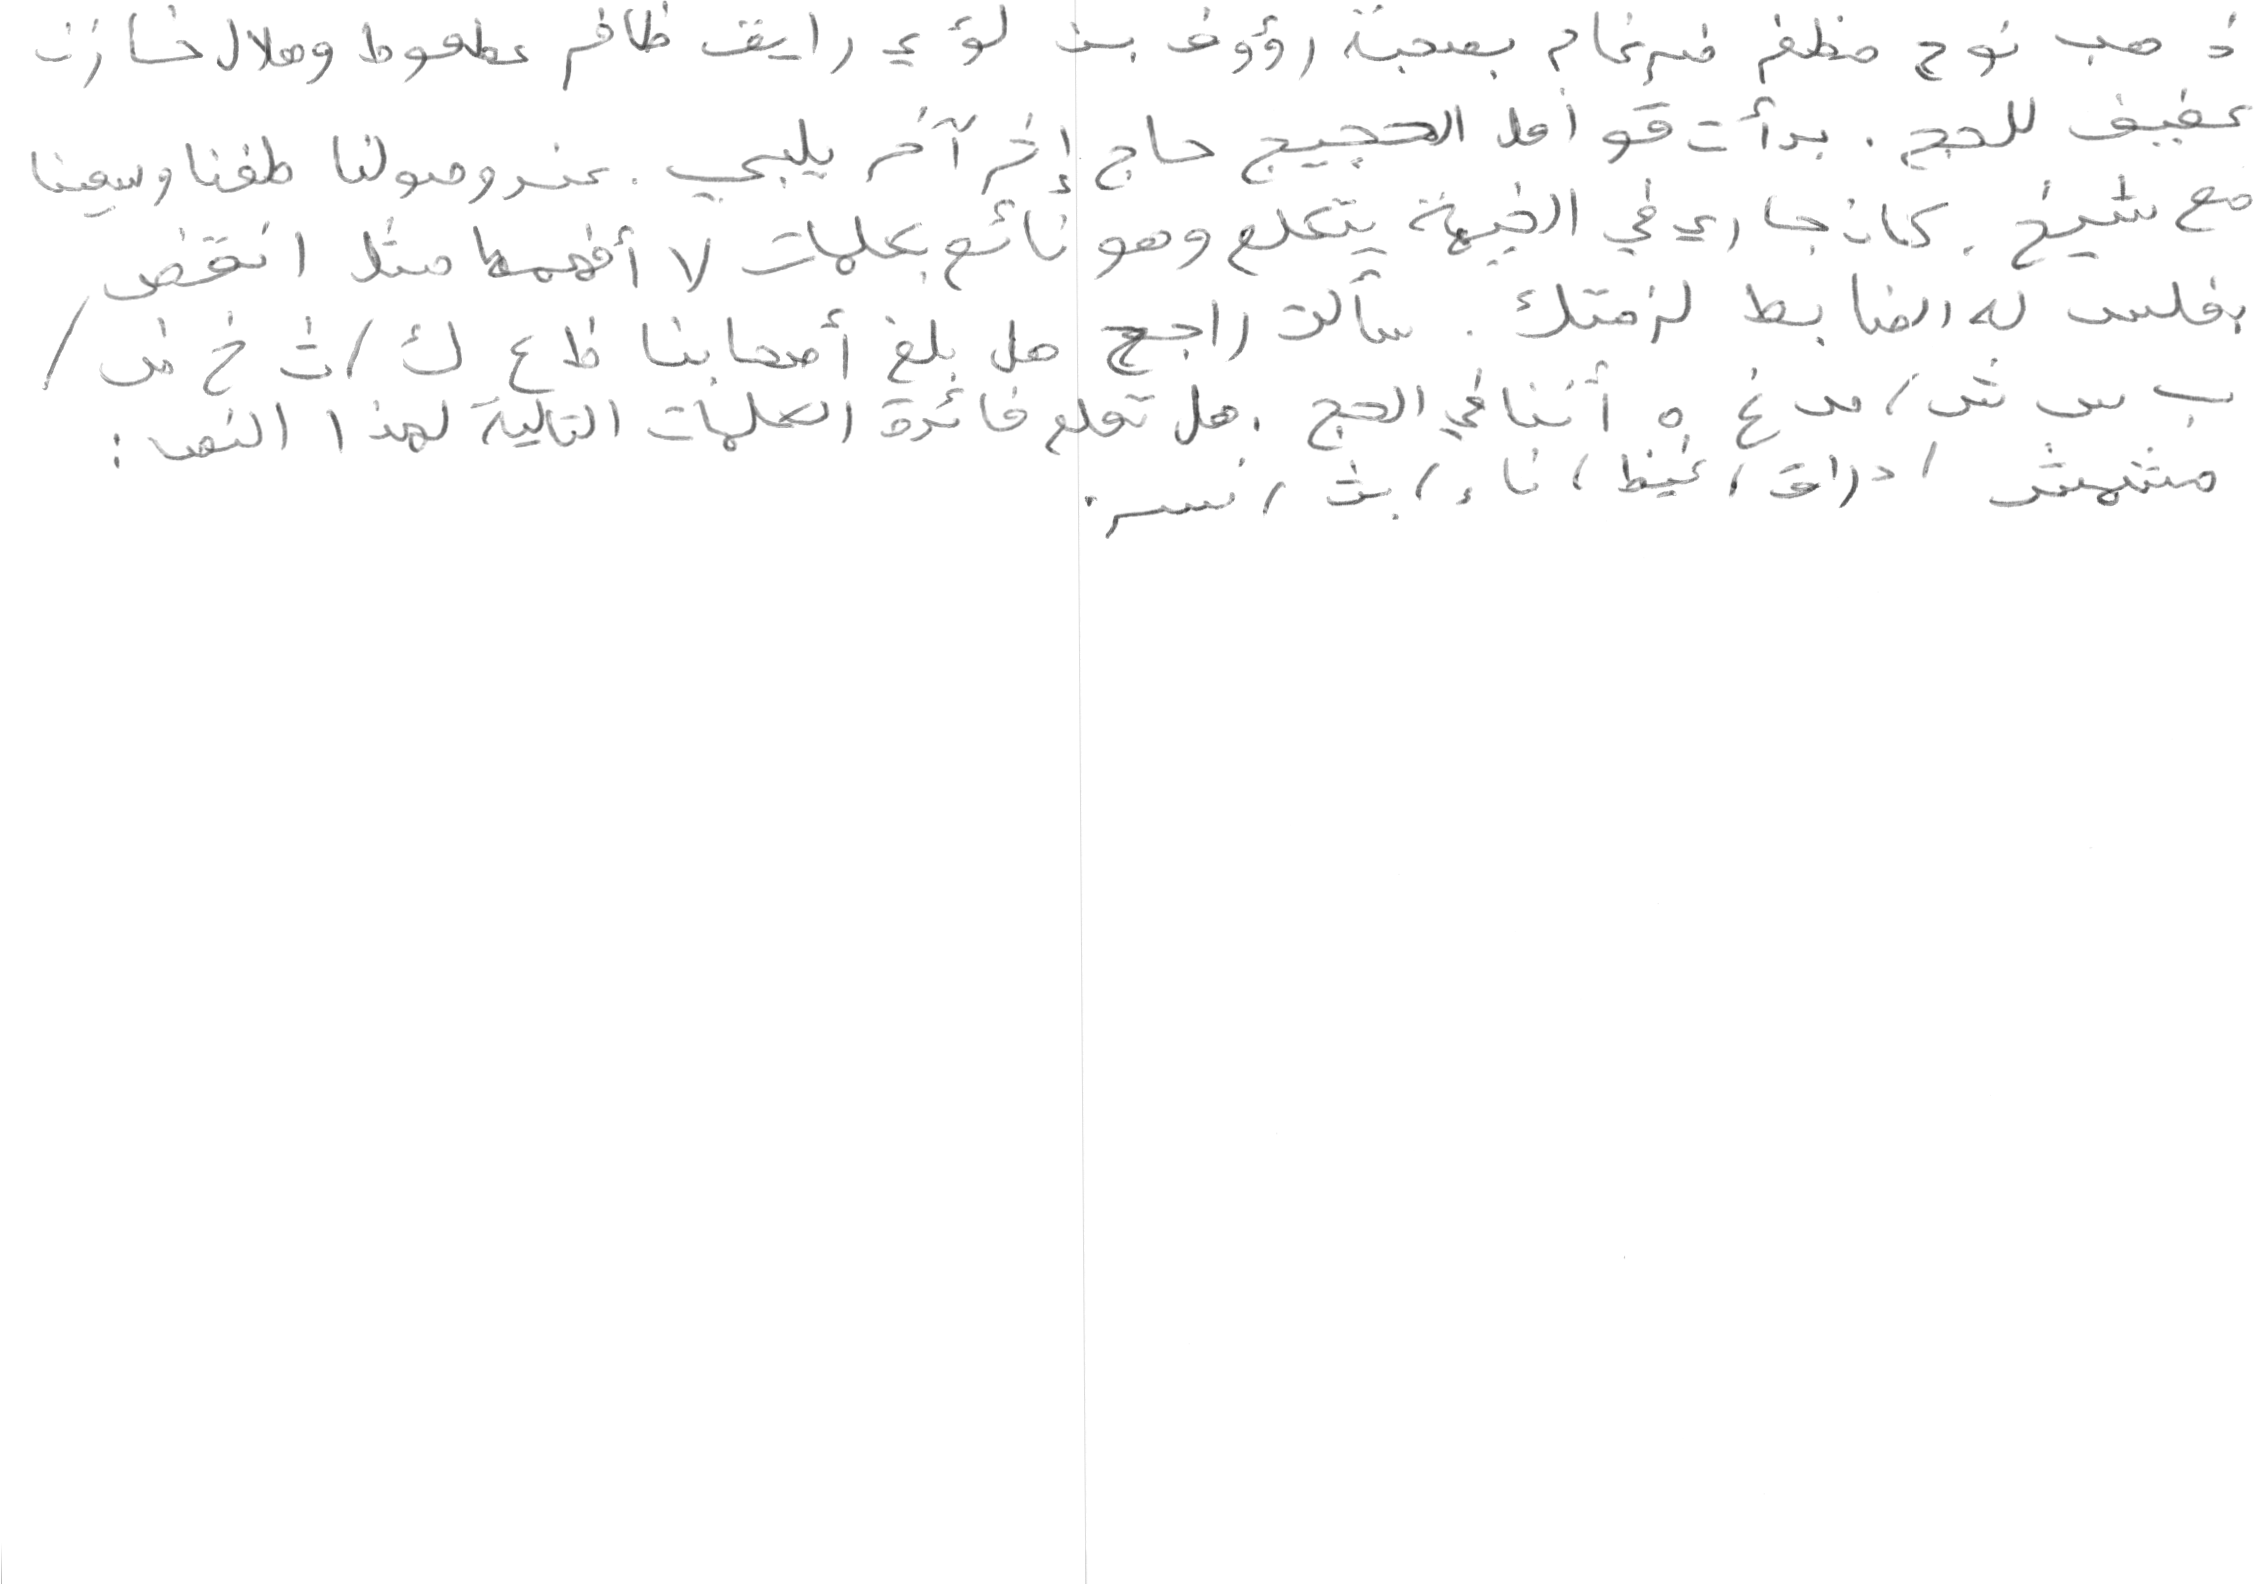 ذهب نوح مظفر ضرغام بصحبة رؤوف بن لؤي رايق ظافر عطعوط وهلال خازن
عفيف للحج . بدأت قوافل الحجيج حاج إثر آخر يلبي . عند وصولنا طفنا وسعينا
مع شيخ . كان جاري في الخيمة يتكلم وهو نائم بكلمات لا أفهمها مثل انقض
بفلس له الضابط لزمتك . سألت راجح هل بلغ أصحابنا ظ ع ك / ث خ ض /
ب س ش / ص غ ه أننا في الحج . هل تعلم فائدة الكلمات التالية لهذا النص :
مشمش / دراق / غيظ / ناء / بث / نسر .